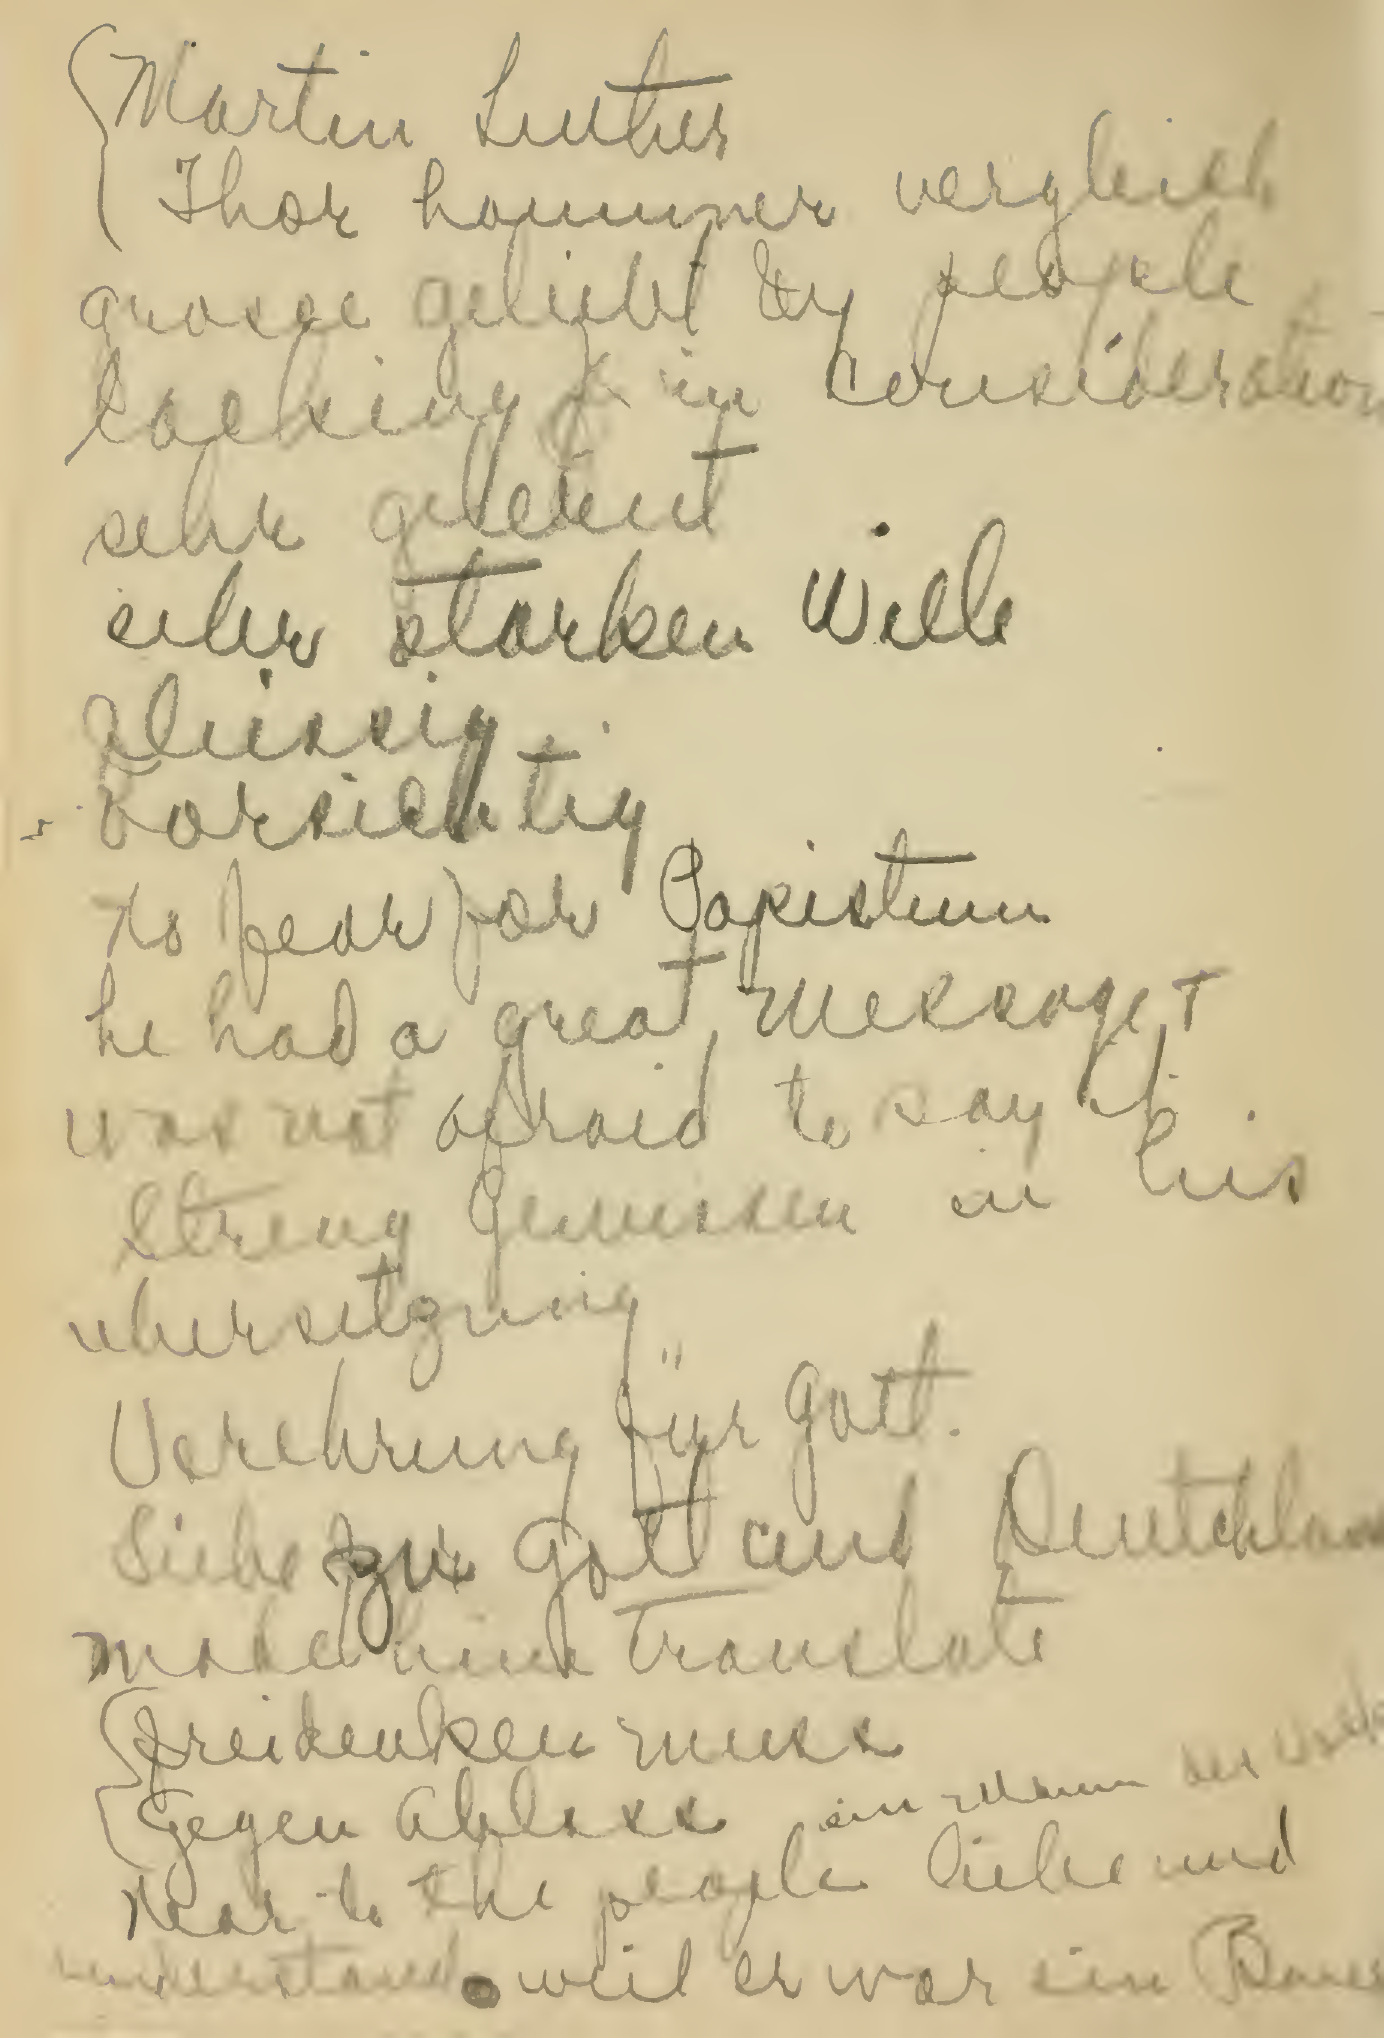 Martin Luther
Thor hammer vergleich
grosse geliebt by people
lacking in consideration
sehr gelehnt
sehr starken Wille
fleissig
vorsichtig
no fear for Papistum
he had a great message +
was not afraid to say it.
streng Gewissen in his
ubersetzung
Verehrung für Gott.
Liebe zu Gott und Deutchlan
made him translate
freidenken muss
Gegen Ablass ein Mann des Volk
near to the people liebe und
understand. weil er war ein Bauer